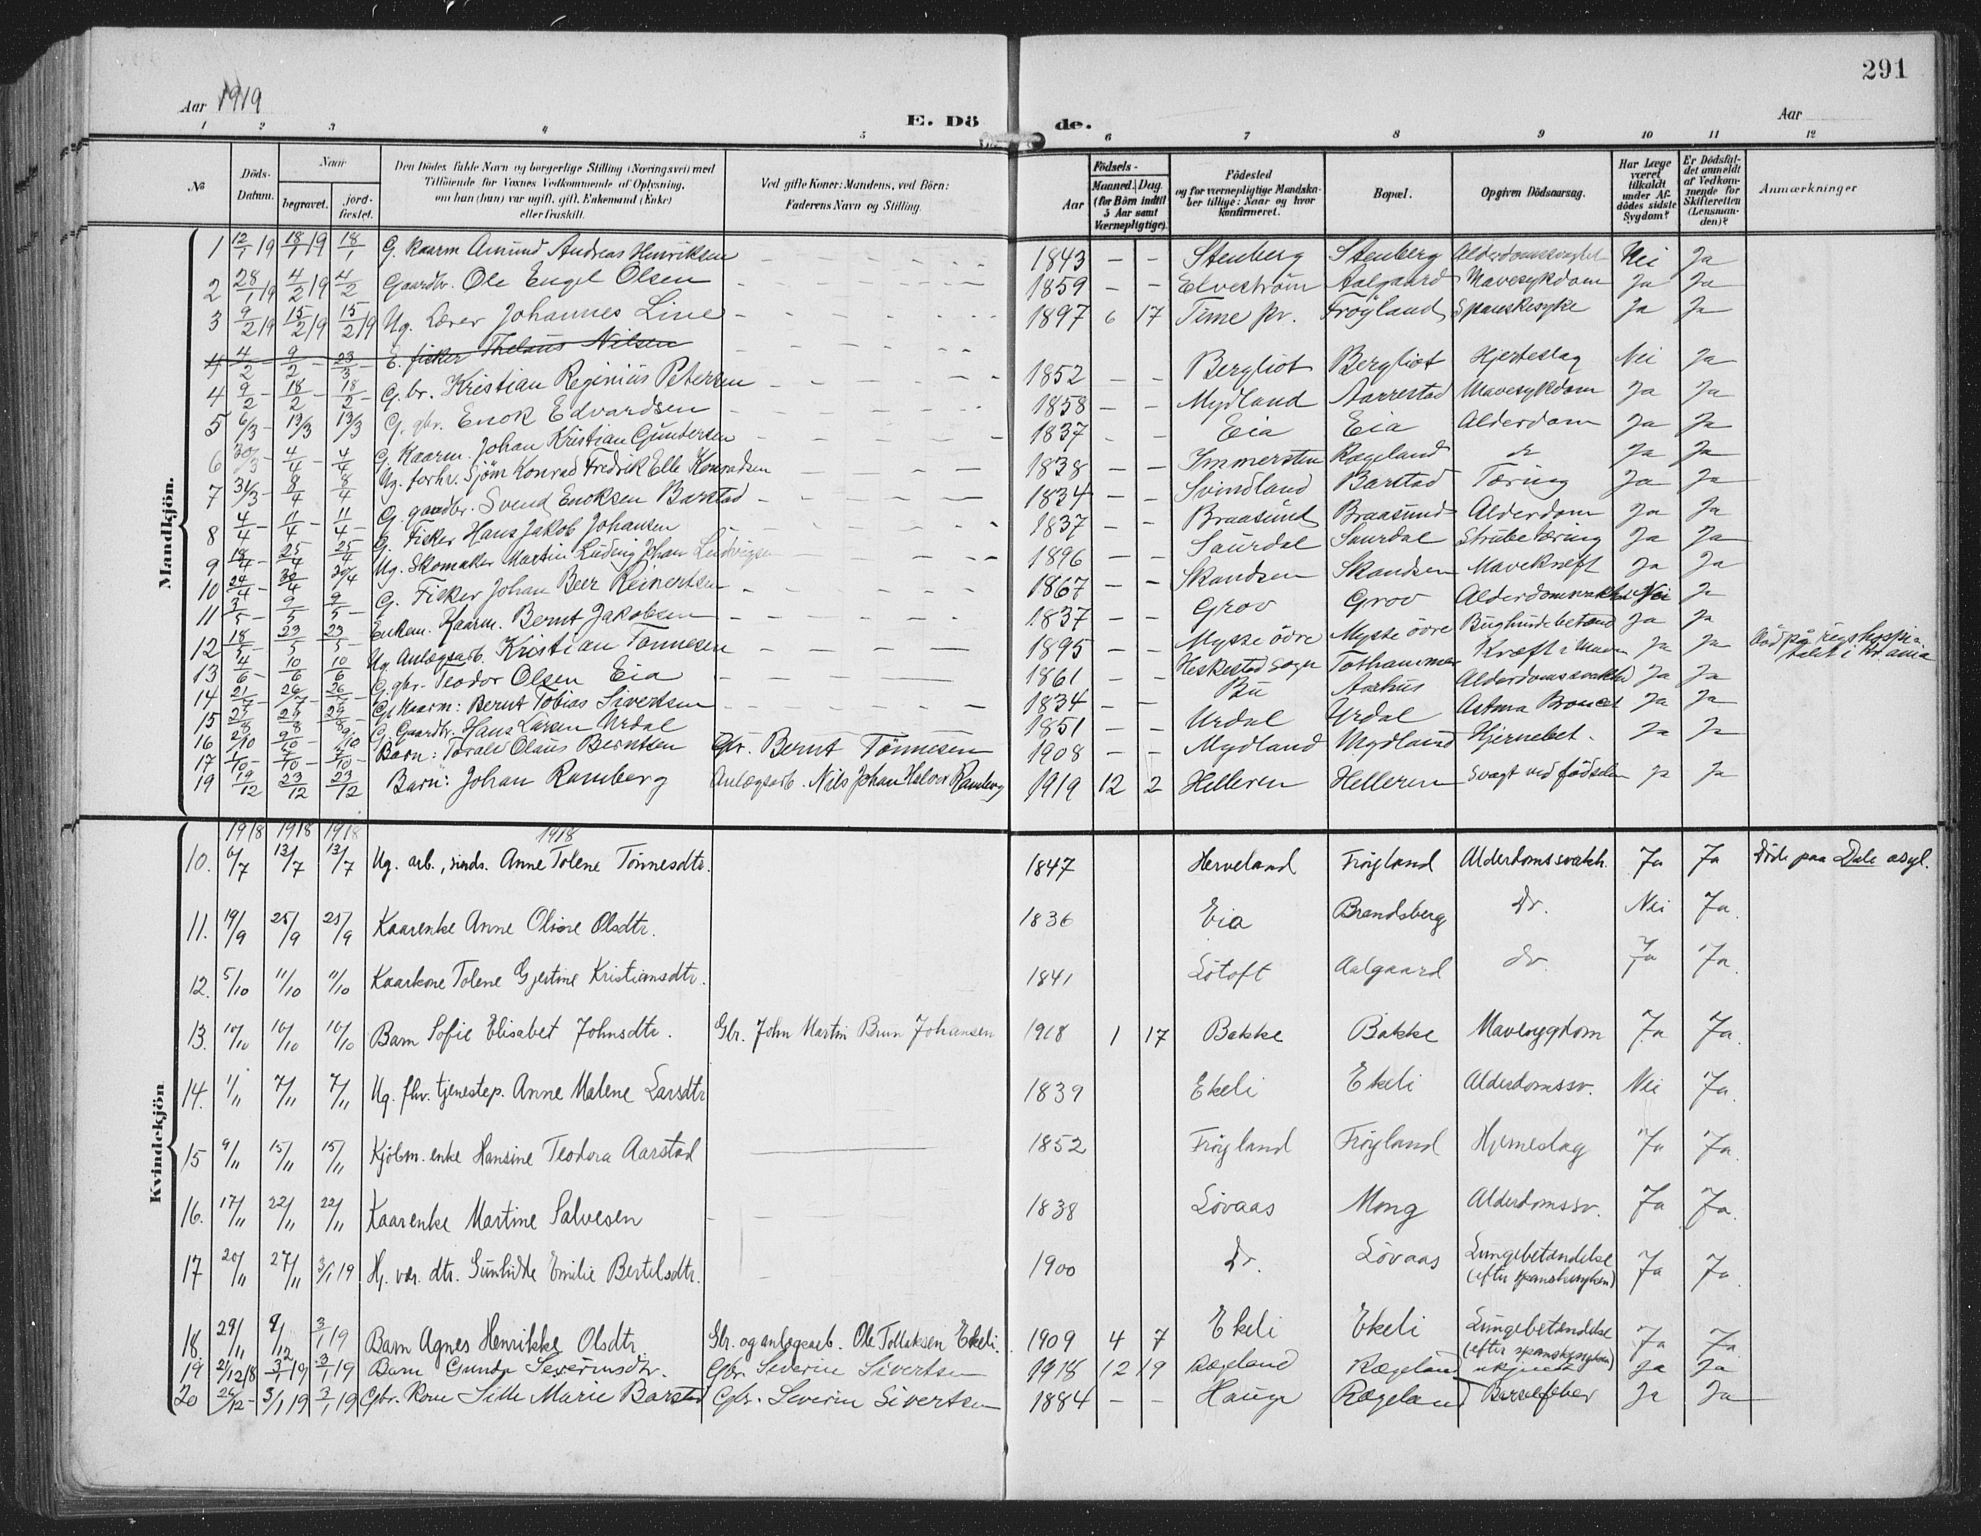 291
Aar 1919
E. Dö de.
Aar
1 2 3 4 5 6 7 8 9 10 11 12
№
Döds-Datum.
Naar
begravet.
jord-fæstet.
Den Dödes fulde Navn og borgerlige Stilling (Næringsvei) med
Tilföiende for Voxnes Vedkommende af Oplysning,
om han (hun) var ugift, gift, Enkemand (Enke)
eller fraskilt.
Ved gifte Koner: Mandens, ved Börn:
Faderens Navn og Stilling.
Födsels-
Aar
Maaned. Dag.
(for Börn indtil
5 Aar samt
Værnepligtige)
Födested
og for værnepligtige Mandska-
ber tillige: Naar og hvor
konfirmeret.
Bopæl.
Opgiven Dödsaarsag.
Har Læge
været
tilkaldt
under Af-
dödes sidste
Sygdom?
Er Dödsfal-
det anmeldt
af Vedkom-
mende for
Skifteretten
(Lensman-
den)?
Anmærkninger
Mandkjön.
1 12/1 19 18/1 19 18/1 G. Kaarm Amund Andreas Henriksen 1843 – – Stenberg Stenberg Nei Ja
2 28/1 19 4/2 19 4/2 Gaardbr. Ole Engel Olsen 1859 – – Elveström Aalgaard Mavesykdom Ja Ja
3 9/2 19 15/2 19 15/2 19 Ug. Lærer Johannes Line 1897 6 17 Time pr. Fröyland Spanskesyke Ja Ja
4 4/2 9/2 – 23/3 – E. fisker Thelaus Nilsen 1852 – – Bergliot Bergliot Hjerteslag Nei Ja
4 9/2 – 18/2 – 18/2 – G. br. Kristian Reginius Petersen 1858 – – Mydland Aarrestad Mavesykdom Ja Ja
5 6/3 – 13/3 13/3 G. gbr. Enok Edvardsen 1837 – – Eia Eia Alderdom Ja Ja
6 30/3 – 4/4 – 4/4 G. Kaarm. Johan Kristian Gundersen 1838 – – Immersten Rægeland do Ja Ja
7 31/3 – 8/4 8/4 Ug. forhv. Sjöm Konrad Fredrik Elle Konradsen 1834 – – Svindland Barstad Tæring Ja Ja
8 4/4 – 11/4 – 11/4 – G. gaardbr. Svend Enoksen Barstad 1837 – – Braasund Braasund Alderdom Ja Ja
9 18/4 – 25/4 25/4 G. Fisker Hans Jakob Johansen 1896 – – Saurdal Saurdal Strubetæring Ja Ja
10 24/4 – 30/4 30/4 Ug. Skomaker Martin Luding Johan Ludvigsen 1867 – – Skandsen Skandsen Mavekreft Ja Ja
11 3/5 – 9/5 9/5 – G. Fisker Johan Beer Reinertsen 1837 – – Grov Grov Nei Ja
12 18/5 – 23/5 23/5 – Enkem. Kaarm. Bernt Jakobsen 1895 – – Mysse övre Mysse övre Ja Ja
13 4/6 – 10/6 10/6 Ug. Anlægsarb. Kristian Tönnesen 1861 – – Heskestad sogn Kræft i Ja Ja
14 21/7 – 26/7 – 26/7 – G. gbr. Teodor Olsen Eia 1834 – – Bu Aarhus Ja Ja
15 23/8 29/8 29/8 G. Kaarm: Bernt Tobias Sivertsen 1851 – – Urdal Urdal Astma Ja Ja
16 2/10 9/10 – 9/10 G. Gaardbr. Hans Larsen Urdal
17 1/10 – 7/10 – 7/10 – Barn: Toralf Olaus Berntsen Gbr. Bernt Tönnesen 1908 – – Mydland Mydland Hjernebet. Ja Ja
19 19/12 23/12 23/12 Barn: Johan Ramberg Anlægsarb. Nils Johan Halvor Ramberg 1919 12 2 Helleren Helleren Svagt ved födselen Ja Ja
Kvindekjön
1918 1918 1918 1918
10. 6/7 13/7 13/7 Ug. arb., sinds. Anne Tolene Tönnesdtr. 1847 Herveland Fröyland Alderdomssvakh. Ja Ja Döde paa Dale asyl.
11. 19/9 25/9 25/9 Kaarenke Anne Olvine Olsdtr. 1836 Eia Brandsberg Do. Nei Ja.
12. 5/10 11/10 11/10 Kaarkone Tolene Gjertine Kristiansdtr. 1841 Lötoft Aalgaard do. Ja Ja.
13. 10/10 10/10 10/10 Barn Sofie Elisabet Johnsdtr. Gbr. John Martin Brun Johansen 1918 1 17 Bakke Bakke Mavesygdom Ja Ja.
14. 1/11 7/11 7/11 Ug. fhv. tjenestep. Anne Malene Larsdtr 1839 Ekeli Ekeli Alderdomssv. Nei Ja.
15 9/11 15/11 15/11 Kjöbm. enke Hansine Teodora Aarstad 1852 Fröyland Fröyland Hjerneslag Ja Ja.
16. 17/11 22/11 22/11 Kaarenke Martine Salvesen 1838 Lövaas Mong Alderdomssv. Ja Ja.
17 20/11 27/11 3/1 19 Hj. vær. dtr. Gunhilde Emilie Bertelsdtr. 1900 Do. Lövaas Lungebetændelse (efter spanskesyken) Ja Ja.
18. 29/11 9/12 3/1 19 Barn Agnes Henrikke Olsdtr. Gbr. og anlægsarb. Ole Tollaksen Ekeli. 1909 4 7 Ekeli Ekeli Lungebetændelse (efter spanskesyken) Ja Ja.
19 21/12 18 3/1 19 3/1 19 Barn Gunda Severinsdtr. Gbr. Severin Sivertsen 1918 12 19 Rægeland Rægeland ukjendt Ja Ja
20 26/12 – 3/1 19 3/1 19 Gbr. kone Sille Marie Barstad Gbr. Severin Sivertsen 1884 – – Hauge Rægeland Barselfeber Ja Ja